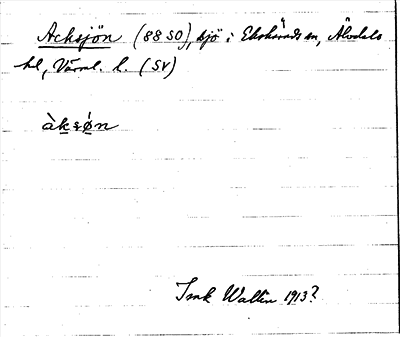 Acksjön (88 SO), sjö i Ekshärads sn, Älvdals
hd, Värml. l. (SV)
àksø̀n
Insk Wallin 1913?